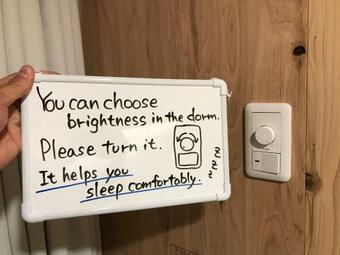 You can choose
brightness in the dorm.
Please turn it.
It helps you
sleep comfortably.